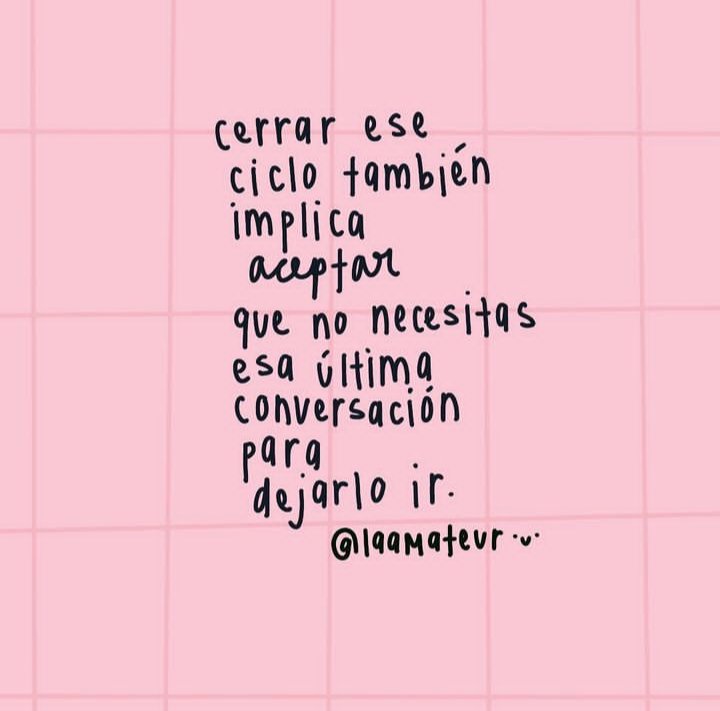 cerrar ese
ciclo también
implica
aceptar
que no necesitas
esa última
conversación
para
dejarlo ir.
@laaMateur ·ᴗ·